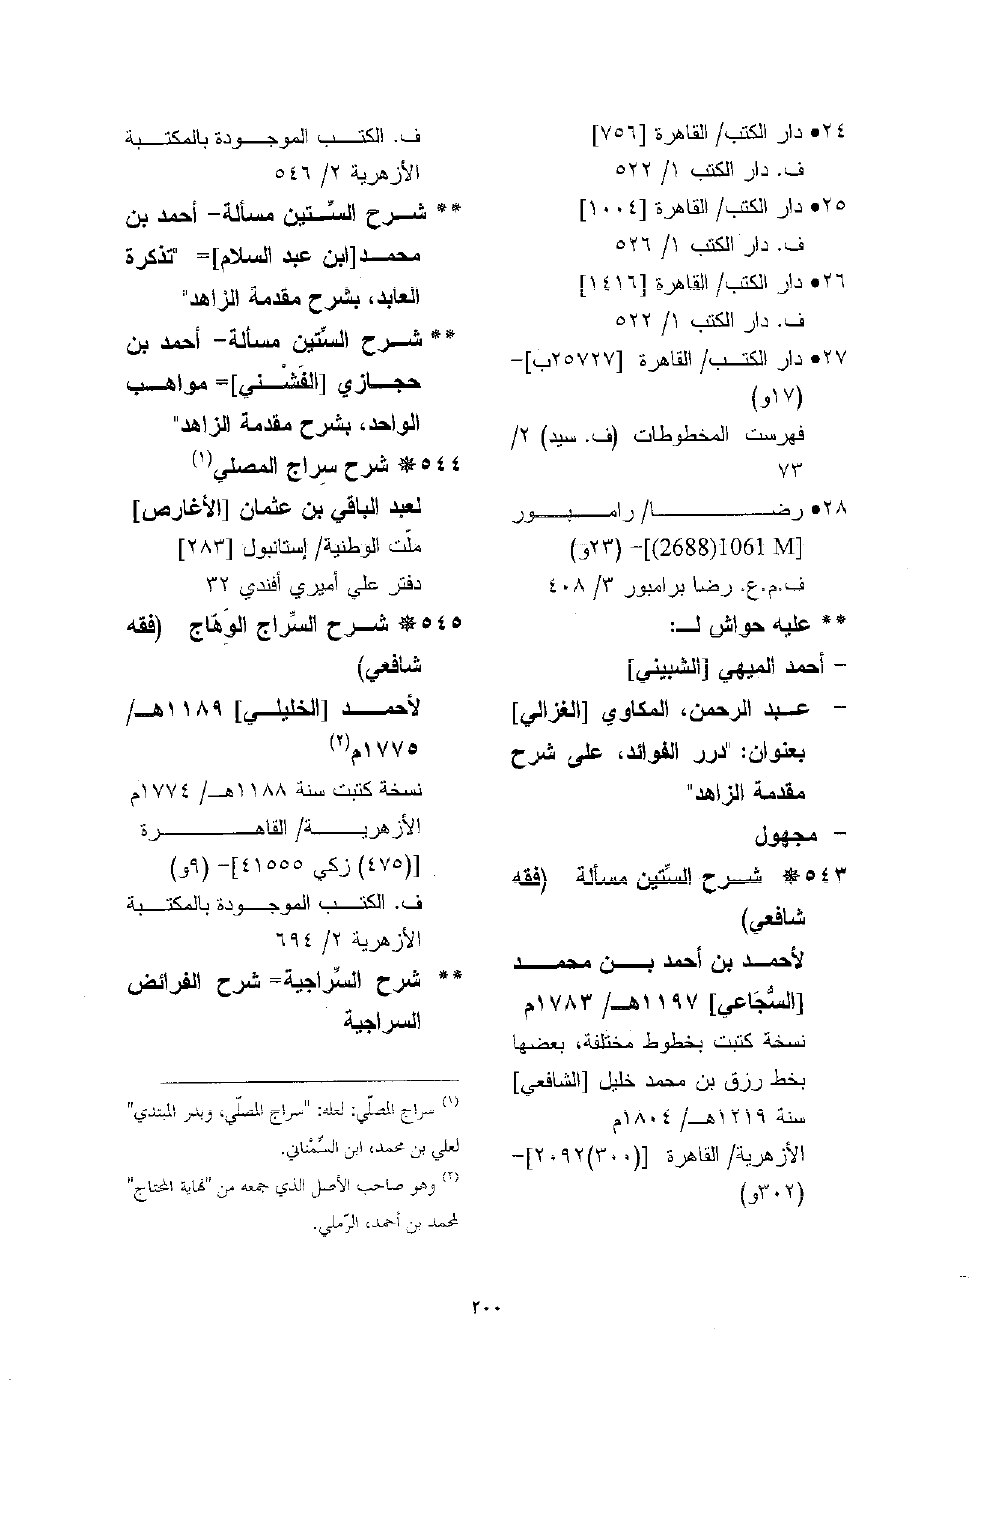 ٢٤• دار الكتب/ القاهرة [٧٥٦]
ف. دار الكتب ١/ ٥٢٢
٢٥• دار الكتب/ القاهرة [١٠٠٤]
ف. دار الكتب ١/ ٥٢٦
٢٦• دار الكتب/ القاهرة [١٤١٦]
ف. دار الكتب ١/ ٥٢٢
٢٧• دار الكتب/ القاهرة [٢٥٧٢٧ب]-
(١٧و)
فهرست المخطوطات (ف. سيد) ٢/
٧٣
٢٨• رضا/ رامبور
[1061 M(2688)]- (٢٣و)
ف.م.ع. رضا برامبور ٣/ ٤٠٨
** عليه حواش لـ:
- أحمد الميهي [الشبيني]
- عبد الرحمن، المكاوي [الغزالي]
بعنوان: "درر الفوائد، على شرح
مقدمة الزاهد"
- مجهول
٥٤٣* شرح الستّين مسألة (فقه
شافعي)
لأحمد بن أحمد بن محمد
[السُّجَاعي] ١١٩٧هـ/ ١٧٨٣م
نسخة كتبت بخطوط مختلفة، بعضها
بخط رزق بن محمد خليل [الشافعي]
سنة ١٢١٩هـ/ ١٨٠٤م
الأزهرية/ القاهرة [(٣٠٠)٢٠٩٢]-
(٣٠٢و)
ف. الكتب الموجودة بالمكتبة
الأزهرية ٢/ ٥٤٦
** شرح السِّتين مسألة- أحمد بن
محمد[ابن عبد السلام]= "تذكرة
العابد، بشرح مقدمة الزاهد"
** شرح الستّين مسألة- أحمد بن
حجازي [الفَشْني]= مواهب
الواحد، بشرح مقدمة الزاهد"
٥٤٤* شرح سراج المصلي(١)
لعبد الباقي بن عثمان [الأغارص]
ملّت الوطنية/ إستانبول [٢٨٣]
دفتر علي أميري أفندي ٣٢
٥٤٥* شرح السِّراج الوَهّاج (فقه
شافعي)
لأحمد [الخليلي] ١١٨٩هـ/
١٧٧٥م(٢)
نسخة كتبت سنة ١١٨٨هـ/ ١٧٧٤م
الأزهرية/ القاهرة
[(٤٧٥) زكي ٤١٥٥٥]- (٩و)
ف. الكتب الموجودة بالمكتبة
الأزهرية ٢/ ٦٩٤
** شرح السِّراجية= شرح الفرائض
السراجية
(١) سراج المصلّي: لعله: "سراج المصلّي، وبدر المبتدي"
لعلي بن محمد، ابن السِّمْناني.
(٢) وهو صاحب الأصل الذي جمعه من "نهاية المحتاج"
لمحمد بن أحمد، الرّملي.
٢٠٠